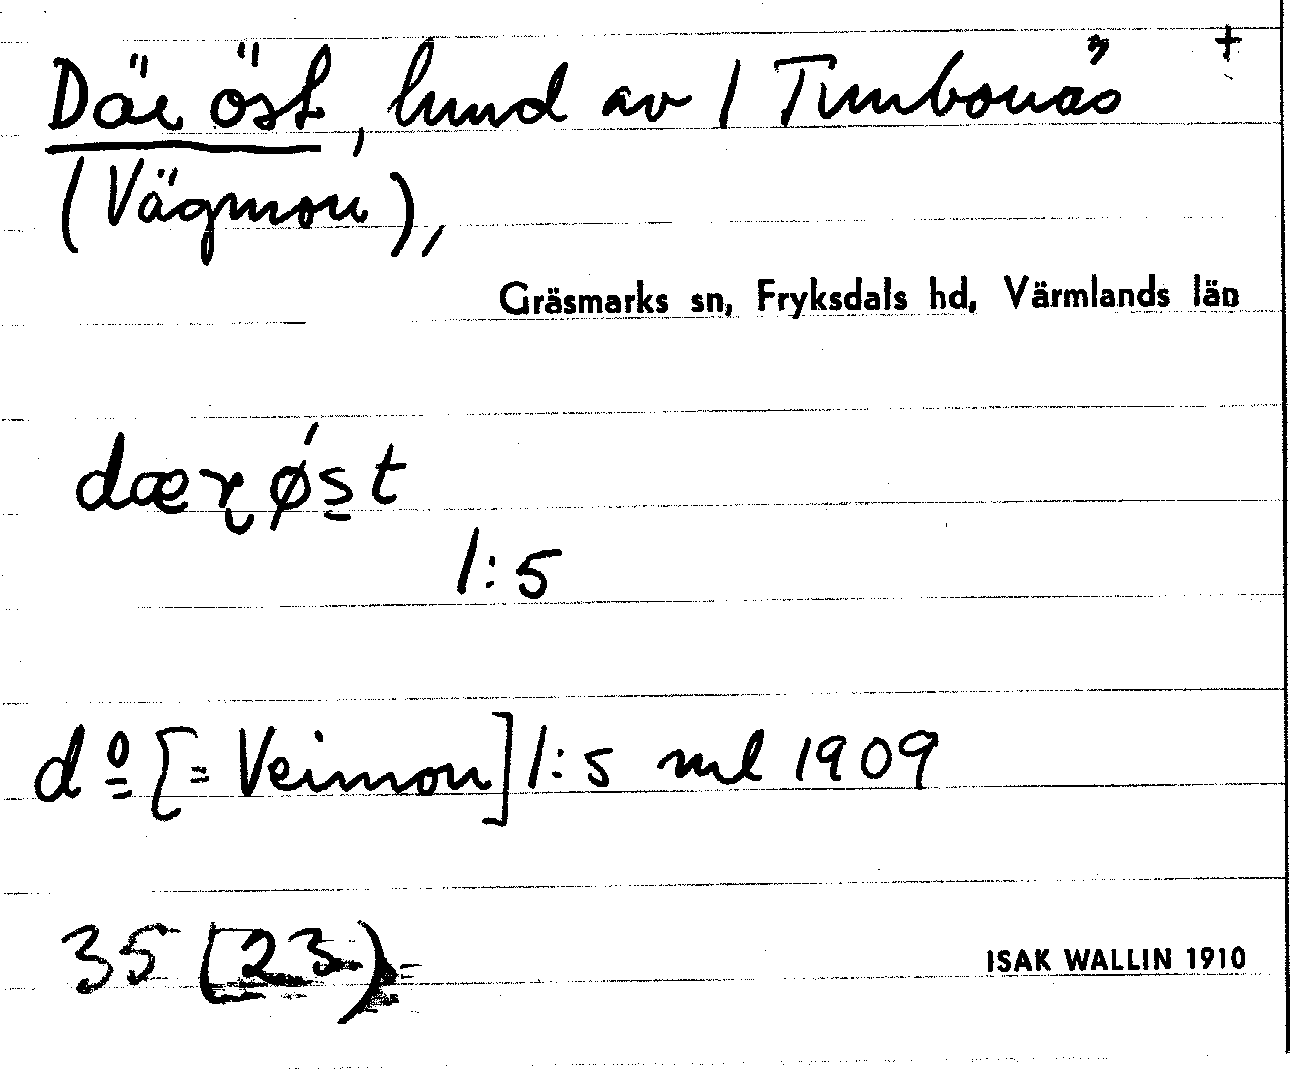 Där öst, lund av 1 Timbonäs +
(Vägmon),
Gräsmarks sn, Fryksdals hd, Värmlands län
dær øst
1:5
do [= Veimon] 1:5 ml 1909
35 (23)
ISAK WALLIN 1910